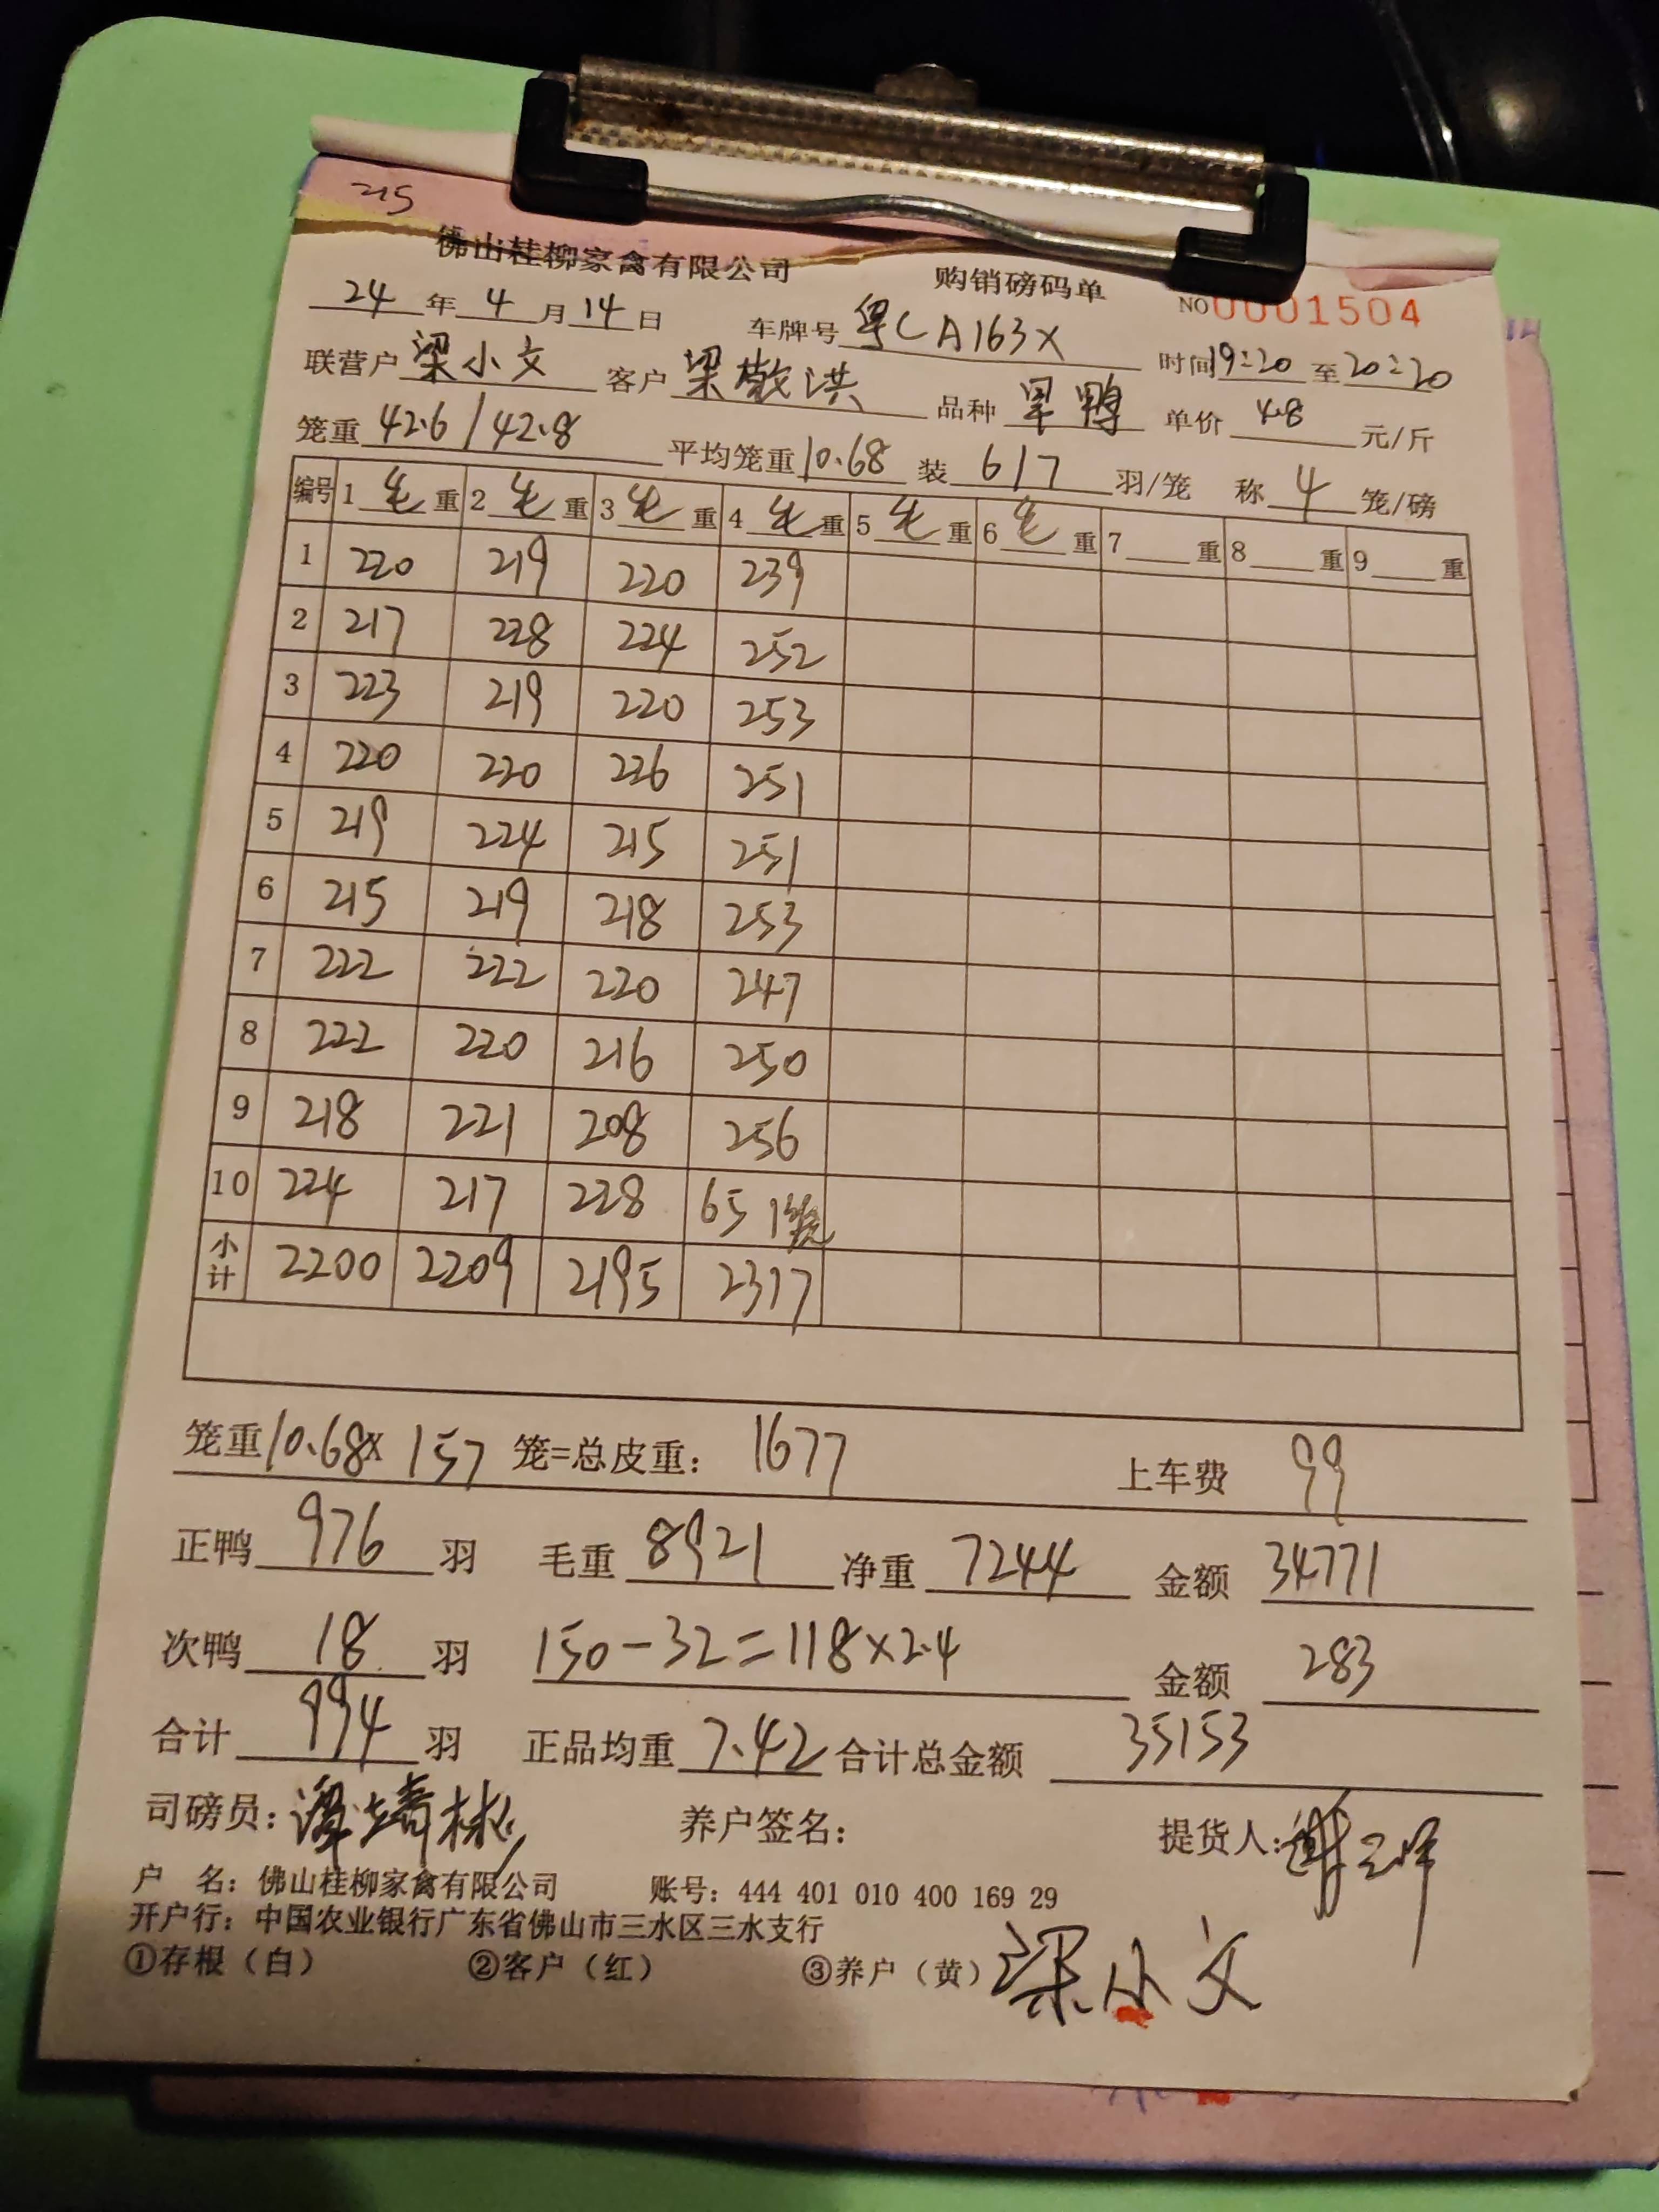 215
佛山桂柳家禽有限公司 购销磅码单 NO 0001504
24年4月14日 车牌号 粤CA163X 时间19:20至20:20
联营户 梁小文 客户 梁敬洪 品种 旱鸭 单价 4.8 元/斤
笼重 42.6/42.8 平均笼重 10.68 装 6/7 羽/笼 称 4 笼/磅
编号 1毛重 2毛重 3毛重 4毛重 5毛重 6毛重 7重 8重 9重
1 220 219 220 239
2 217 228 224 252
3 223 219 220 253
4 220 220 226 251
5 219 224 215 251
6 215 219 218 253
7 222 222 220 247
8 222 220 216 250
9 218 221 208 256
10 224 217 228 65 1笼
小计 2200 2209 2195 2317
笼重10.68× 157 笼=总皮重: 1677 上车费 99
正鸭 976 羽 毛重 8921 净重 7244 金额 34771
次鸭 18 羽 150-32=118×2.4 金额 283
合计 994 羽 正品均重 7.42 合计总金额 35153
司磅员: 养户签名: 提货人:
户 名: 佛山桂柳家禽有限公司 账号: 444 401 010 400 169 29
开户行: 中国农业银行广东省佛山市三水区三水支行
①存根(白) ②客户(红) ③养户(黄) 梁小文